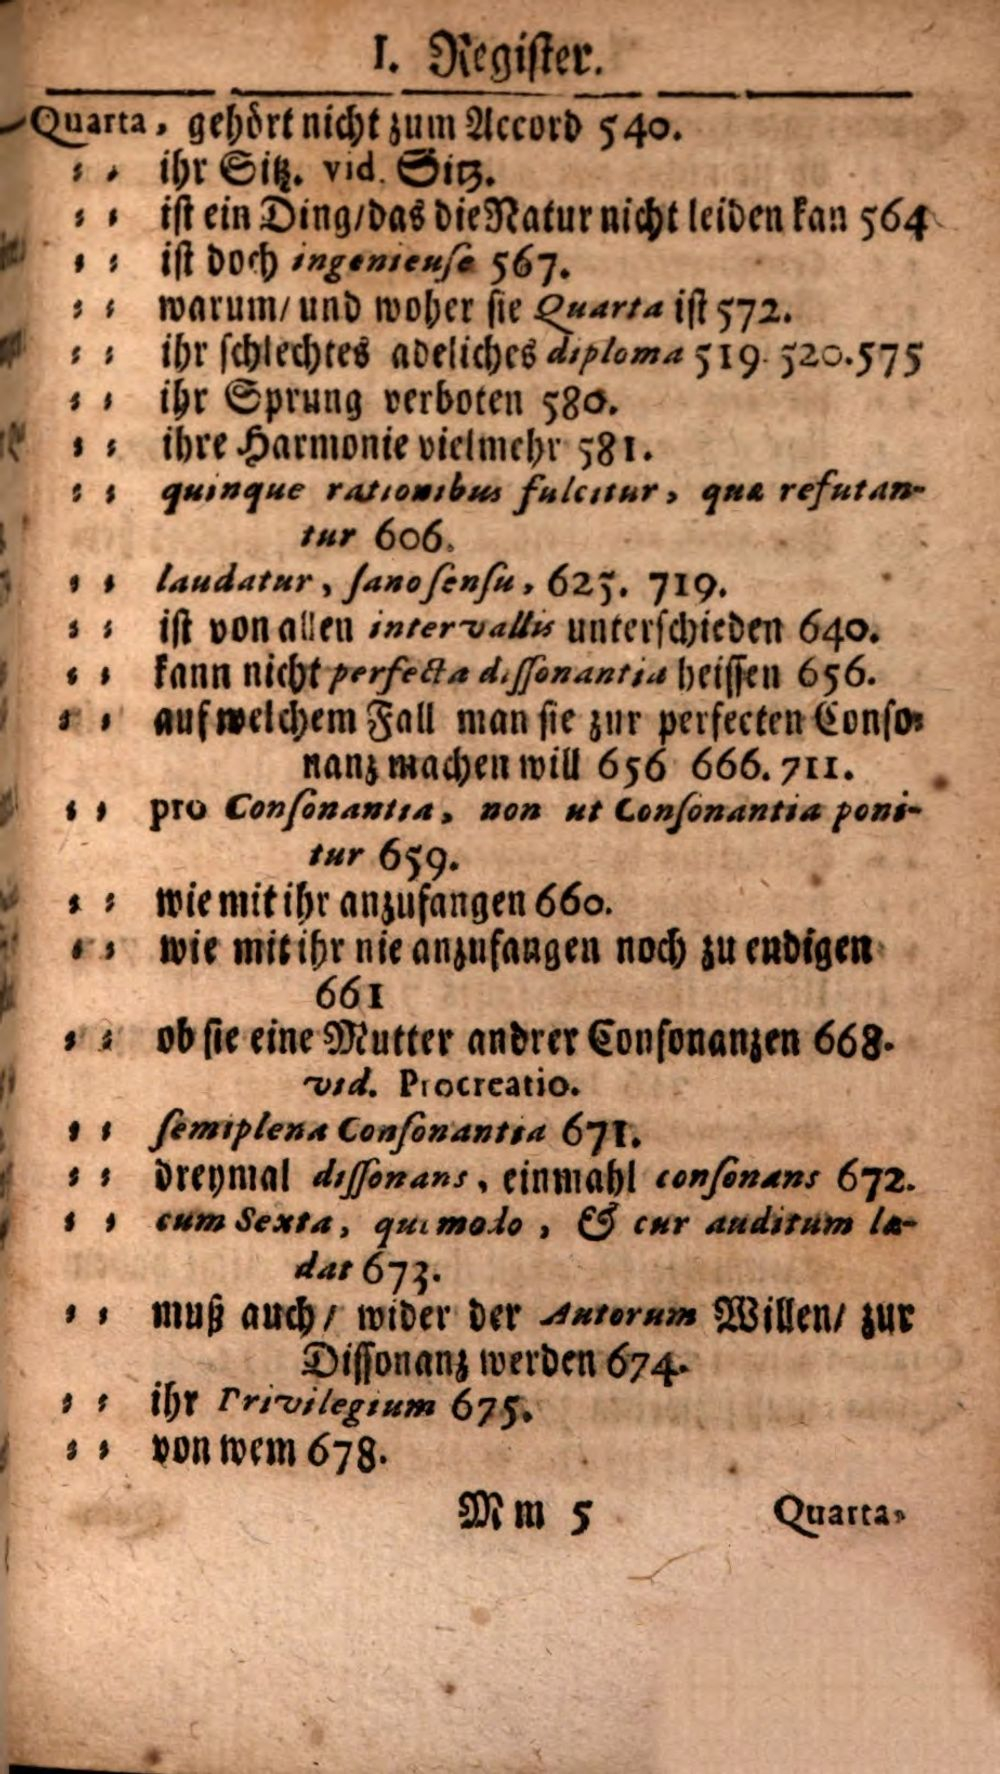 I. Register.
Quarta, gehört nicht zum Accord 540.
⸗ ⸗ ihr Sitz. vid. Sitz.
⸗ ⸗ ist ein Ding/das die Natur nicht leiden kan 564
⸗ ⸗ ist doch ingenieuse 567.
⸗ ⸗ warum/ und woher sie Quarta ist 572.
⸗ ⸗ ihr schlechtes adeliches diploma 519. 520.575
⸗ ⸗ ihr Sprung verboten 580.
⸗ ⸗ ihre Harmonie vielmehr 581.
⸗ ⸗ quinque rationibus fulcitur, quæ refutan-
tur 606.
⸗ ⸗ laudatur, sano sensu, 625. 719.
⸗ ⸗ ist von allen intervallis unterschieden 640.
⸗ ⸗ kann nicht perfecta dissonantia heissen 656.
⸗ ⸗ auf welchem Fall man sie zur perfecten Conso⸗
nanz machen will 656 666. 711.
⸗ ⸗ pro Consonantia, non ut Consonantia poni-
tur 659.
⸗ ⸗ wie mit ihr anzufangen 660.
⸗ ⸗ wie mit ihr nie anzufangen noch zu endigen
661
⸗ ⸗ ob sie eine Mutter andrer Consonanzen 668.
vid. Procreatio.
⸗ ⸗ semiplena Consonantia 671.
⸗ ⸗ dreymal dissonans, einmahl consonans 672.
⸗ ⸗ cum Sexta, quimodo, & cur auditum læ-
dat 673.
⸗ ⸗ muß auch/ wider der Autorum Willen/ zur
Dissonanz werden 674.
⸗ ⸗ ihr Privilegium 675.
⸗ ⸗ von wem 678.
Mm 5 Quarta,